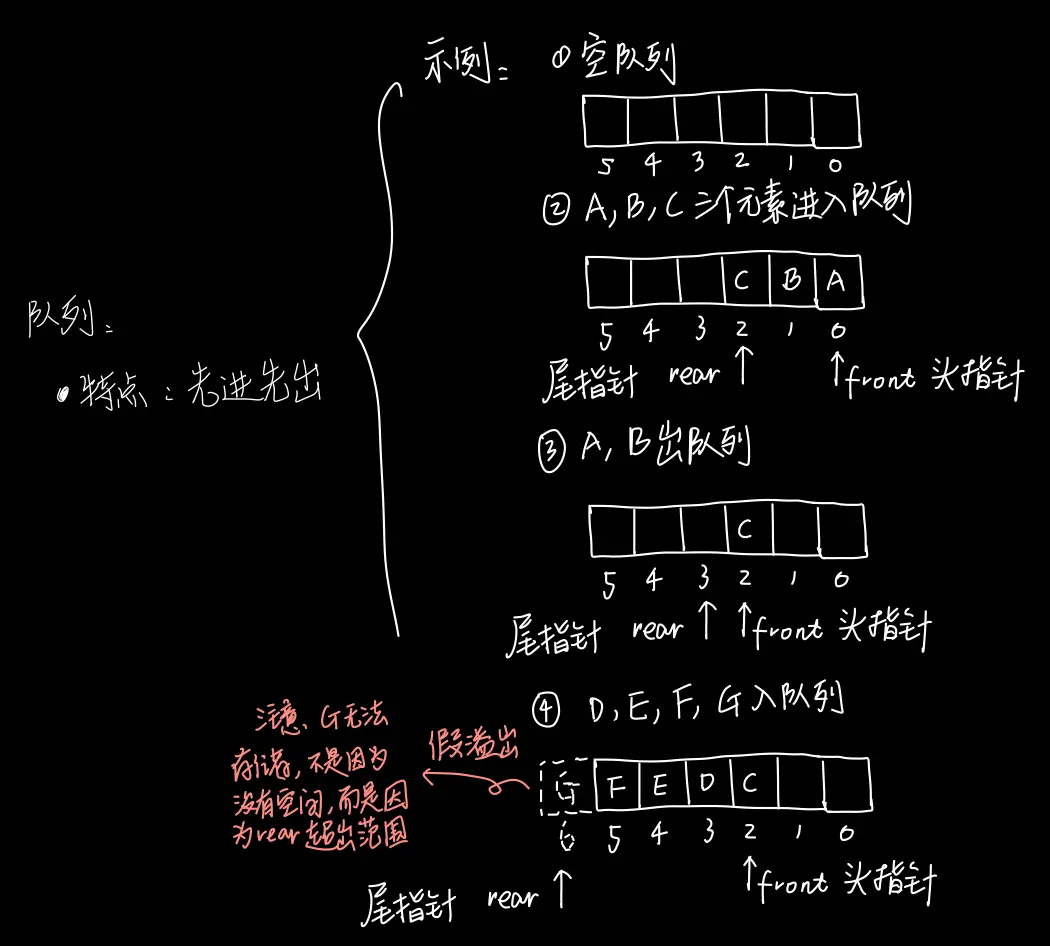 示例: ①空队列
5 4 3 2 1 0
② A, B, C 三个元素进入队列
C B A
5 4 3 2 1 0
尾指针 rear ↑ ↑front 头指针
队列:
• 特点: 先进先出
③ A, B出队列
C
5 4 3 2 1 0
尾指针 rear ↑ ↑front 头指针
④ D, E, F, G入队列
注意、G无法
存储, 不是因为
没有空间, 而是因
为rear超出范围
假溢出
G F E D C
6 5 4 3 2 1 0
尾指针 rear ↑ ↑front 头指针